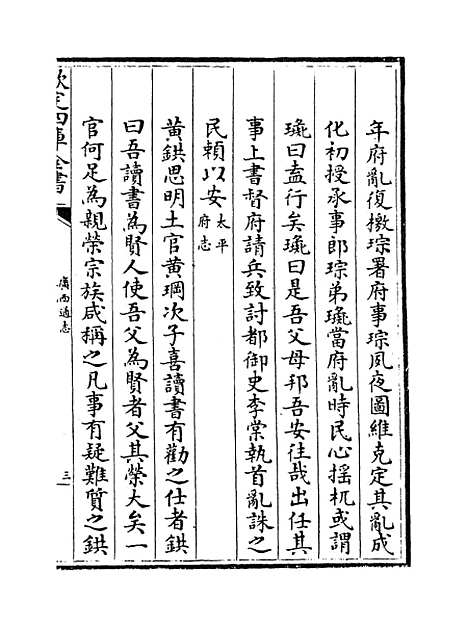 年府亂復檄琮署府事琮夙夜圖維克定其亂成
化初授承事郎琮弟璣當府亂時民心揺杌或謂
璣曰盍行矣璣曰是吾父母邦吾安往哉出任其
事上書督府請兵致討都御史李棠執首亂誅之
民頼以安太平
府志
黄鉷思明土官黄㻏次子喜讀書有勸之仕者鉷
曰吾讀書為賢人使吾父為賢者父其榮大矣一
官何足為親榮宗族咸稱之凡事有疑難質之鉷
欽定四庫全書
廣西通志
三